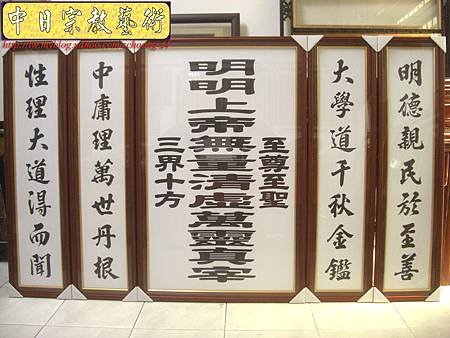 中日宗教藝術
明德親民於至善
大學道千秋金鑑
明明上帝無量清虛萬靈真宰
至尊至聖
三界十方
中庸理萬世丹根
性理大道得而聞